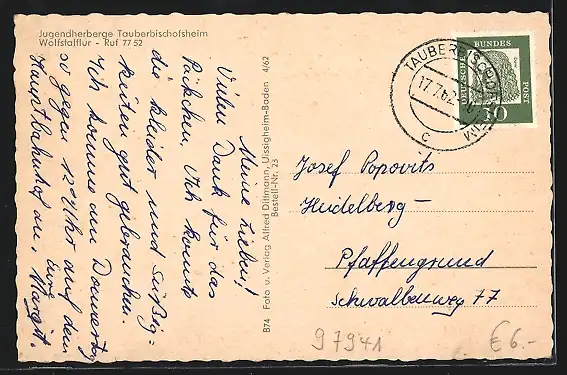 Jugendherberge Tauberbischofsheim
Wolfstalflur - Ruf 77 52
Meine Lieben!
Vielen Dank für das
Päckchen. Ich konnte
die Kleider und Süßig-
keiten gut gebrauchen.
Ich komme am Donnerstag
so gegen 12 24 Uhr auf dem
Hauptbahnhof an. Eure
Margit.
B74 Foto u. Verlag Alfred Dittmann, Uissigheim-Baden 4/62
Bestell-Nr. 23
TAUBERBISCHOFSHEIM
17.7.62
C
DEUTSCHE
BUNDES
POST
10
Josef Popovits
Heidelberg -
Pfaffengrund
Schwalbenweg 77
97941
€ 6.-